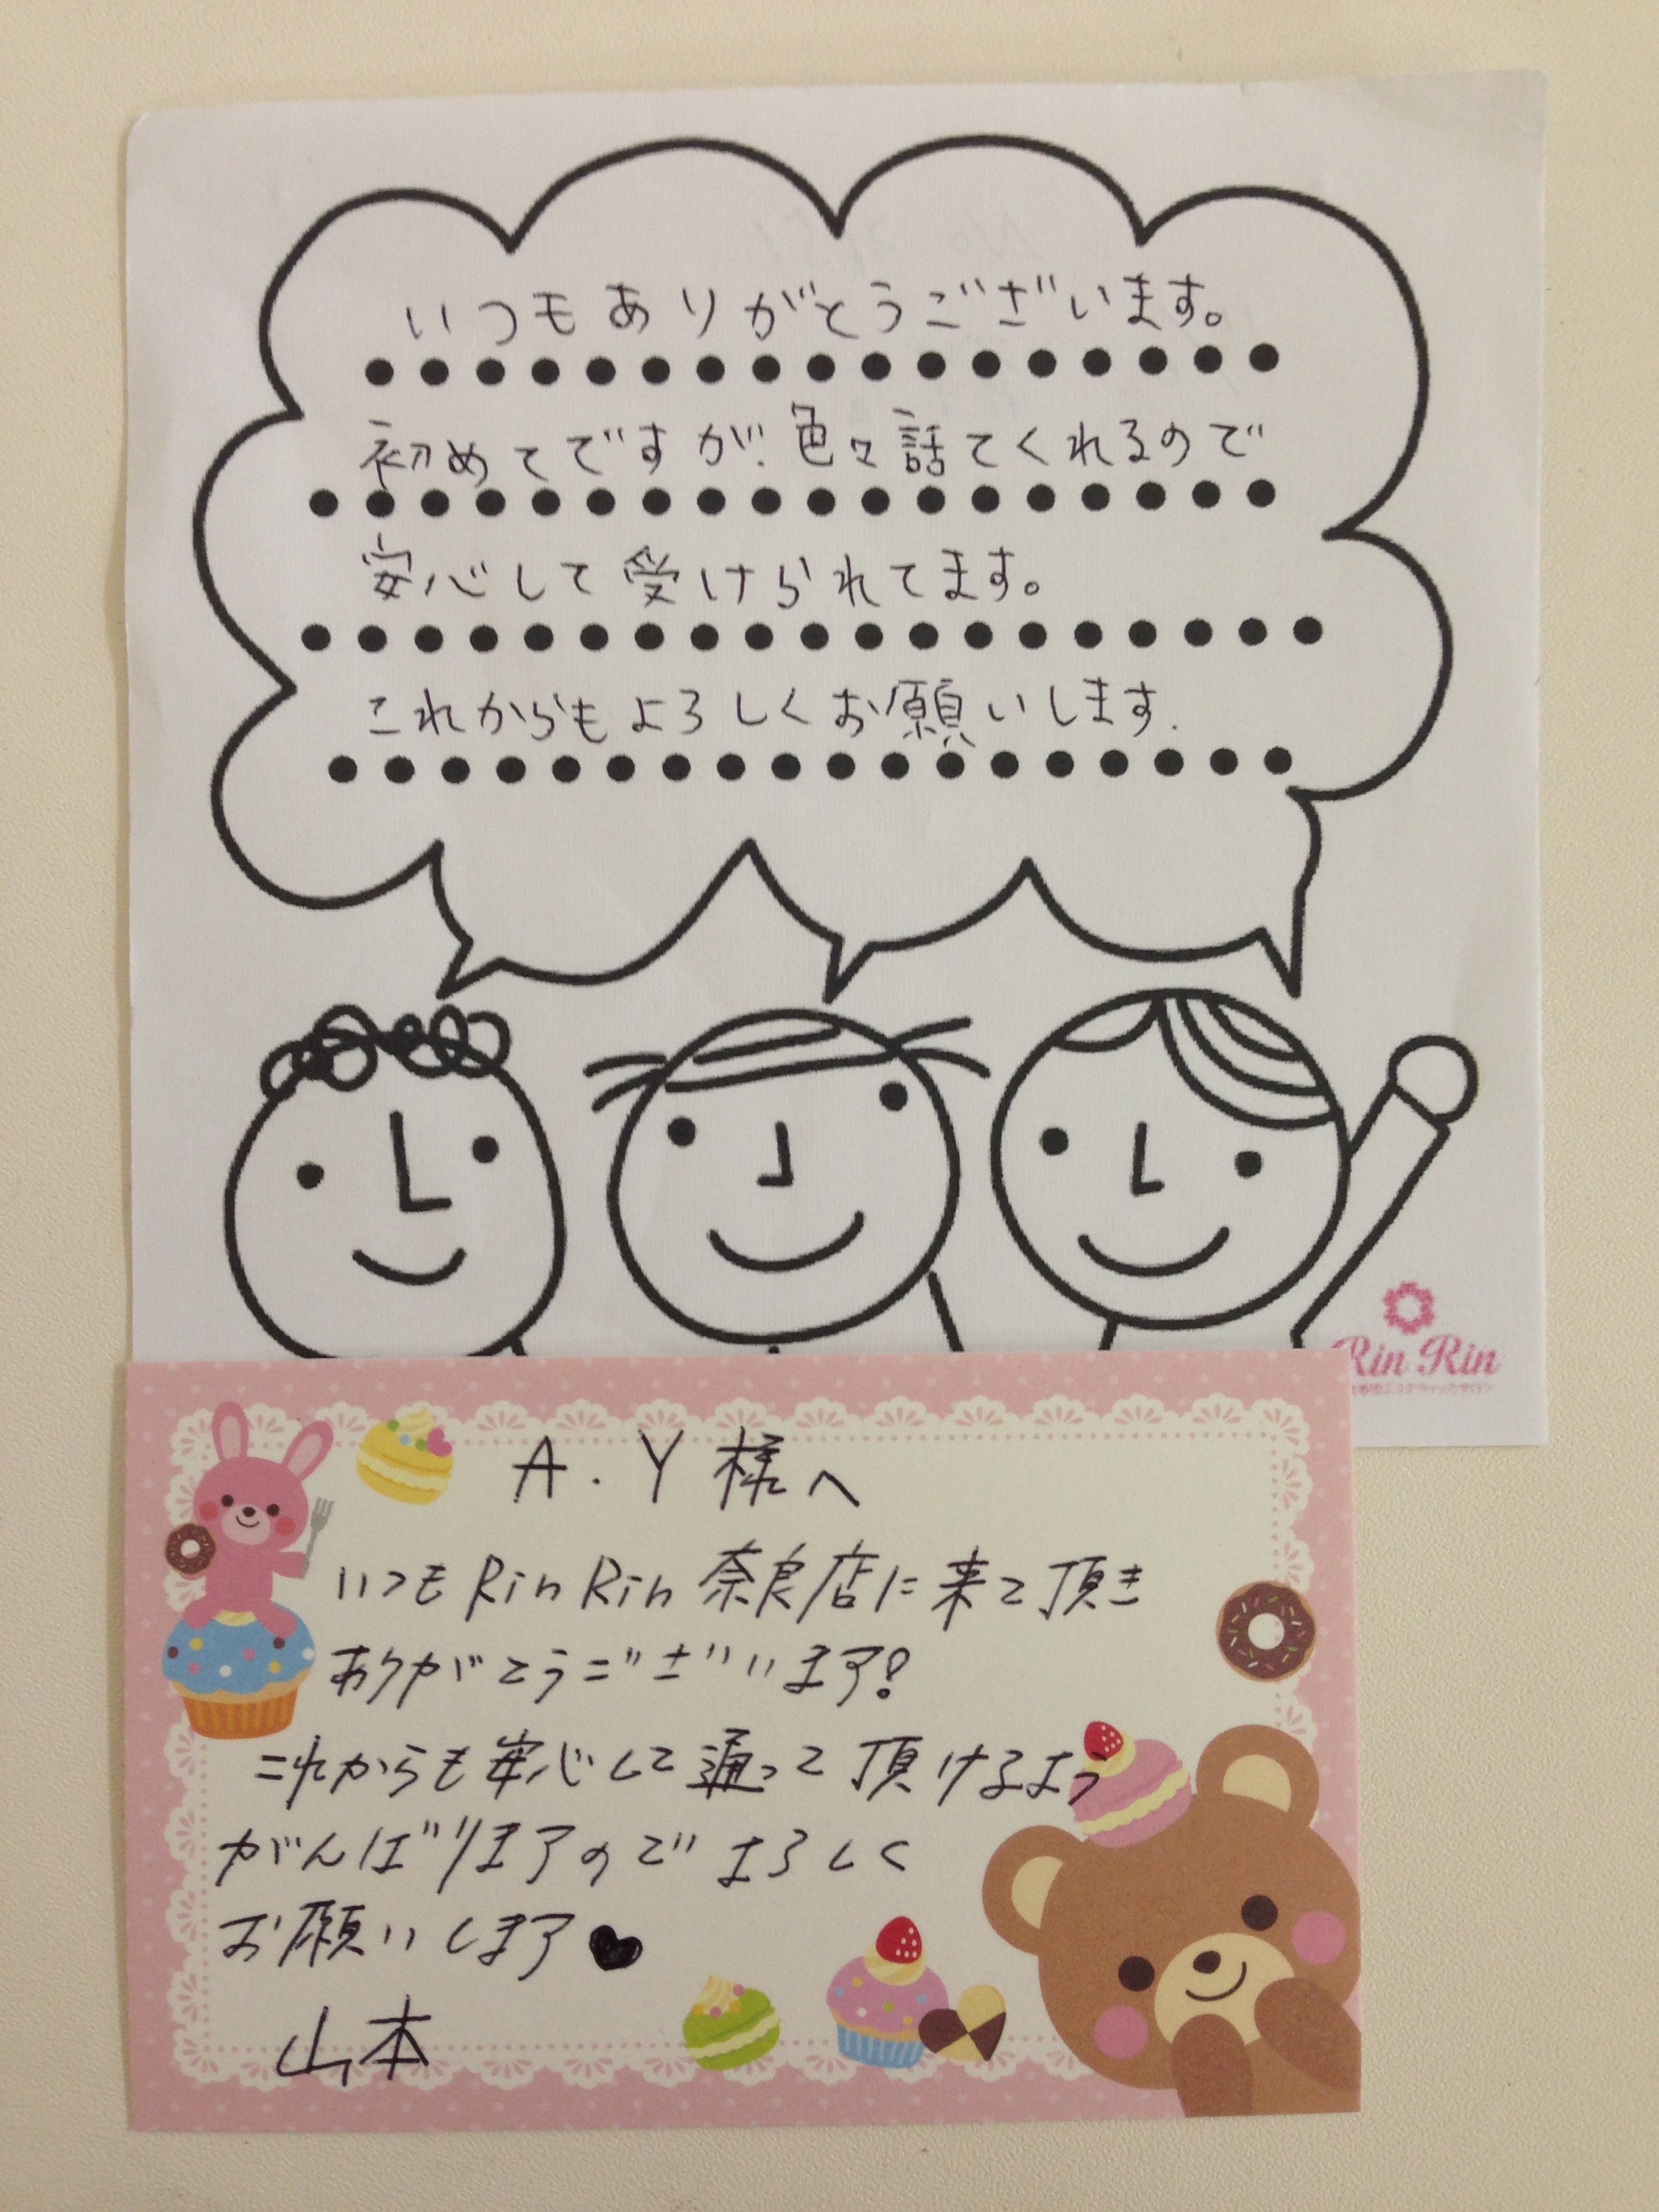 いつもありがとうございます。
初めてですが、色々話てくれるので
安心して受けられてます。
これからもよろしくお願いします.
Rin Rin
A.Y様へ
いつもRinRin奈良店に来て頂き
ありがとうございます!
これからも安心して通って頂けるよう
がんばりますのでよろしく
お願いします♥
山本